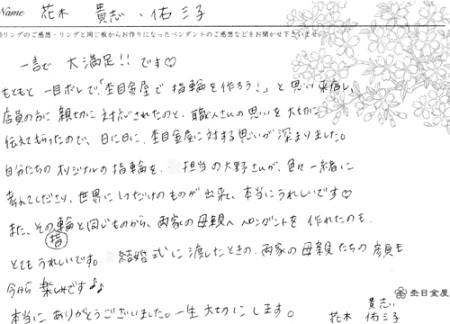 Name 花木 貴志・佑三子
リングのご感想・リングと同じ板からお作りになったペンダントのご感想などをお聞かせ下さいませ。
一言で 大満足!! です♡
もともと 一目ボレで、「杢目金屋で 指輪を作ろう!」と思い来店し、
店員の方に 親切に 対応されたのと、職人さんの思いを 大切に
伝えて頂いたので、日に日に、杢目金屋に対する思いが 深まりました。
自分たちの オリジナルの 指輪を、担当の大野さんが、色々一緒に
考えてくださり、世界に1つだけのものが 出来て、本当にうれしいです♡
また、その指輪と同じものから、両家の母親へ ペンダントを 作れたのも、
とてもうれしいです。 結婚式に 渡したときの、両家の母親たちの 顔も
今から 楽しみです♪♪
本当に ありがとうございました。一生 大切に します。
杢目金屋
花木 貴志
佑三子